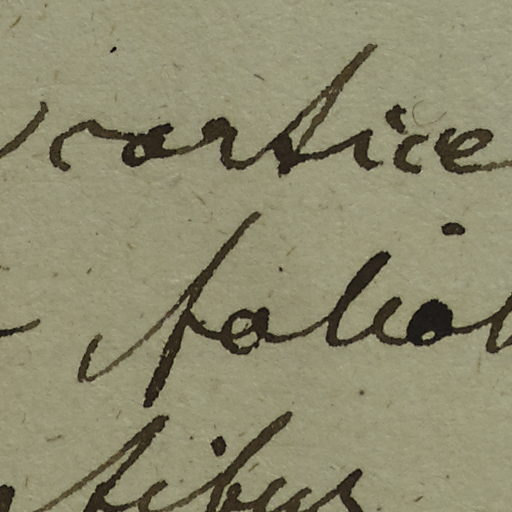 cortice
foliol
tibus